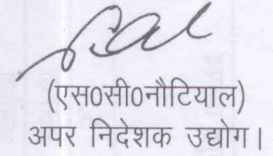 (एस0सी0नौटियाल)
अपर निदेशक उद्योग।